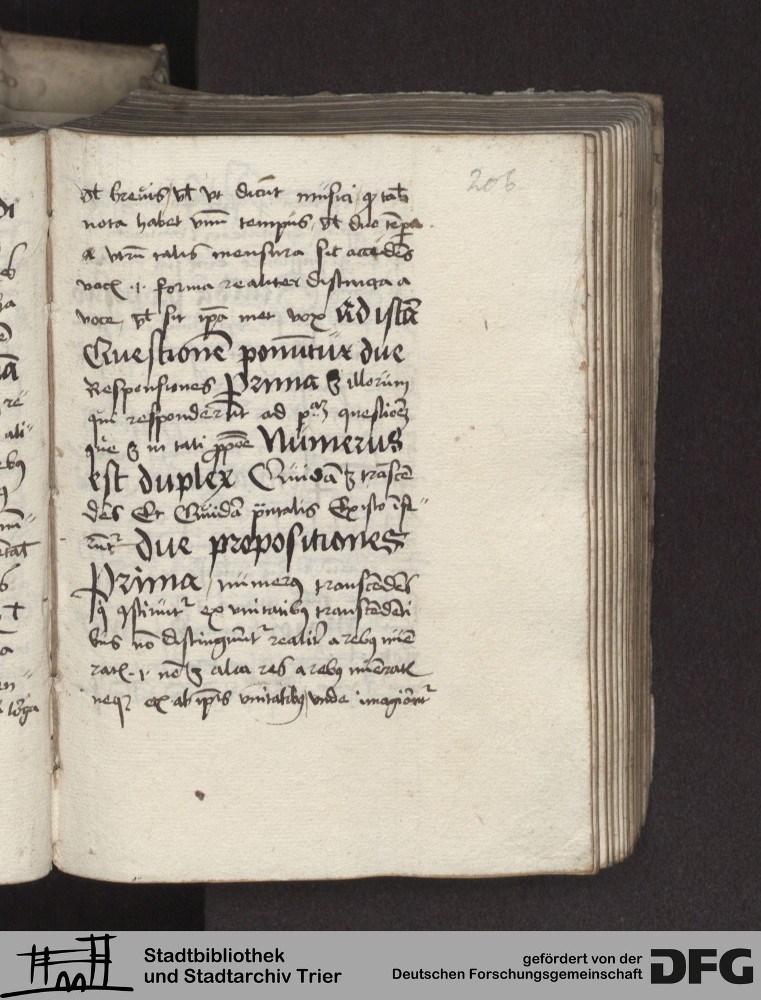 206
vel brevis, vel ut dicūt musici, q talis
nota habet unū tempus, vel duo tēpa
& utrū talis mensura sit accidēs
voci .i. forma realiter distincta a
voce, vel sit ipā met vox Ad istā
Questionē ponūtur due
Responsiones Prima ē illorum
qui responderūt ad pam questionē
que ē in tali ppōe Numerus
est duplex Quidā ē trāscē
dēs Et Quidā Ex isto īfe
rūtr due propositiones
Prima, numerus transcēdēs
qstituūtr ex unitatibus transcēdēti
bus nō distinguūtr realitr a rebus nūe
ratis .i. nō ē alia res a rebus nūeratis
neque ab ipīs unitatibus, unde imaginātr
Stadtbibliothek
und Stadtarchiv Trier
gefördert von der
Deutschen Forschungsgemeinschaft
DFG